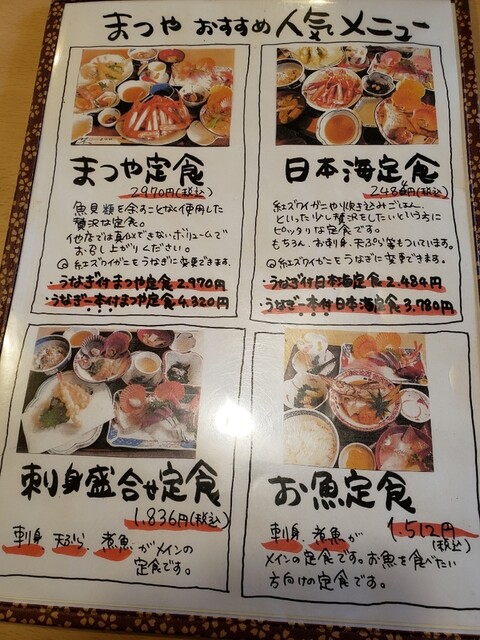 まつや おすすめ人気メニュー
まつや定食
2970円(税込)
魚貝類を余すことなく使用した
贅沢な定食。
他店では真似できないボリュームで
お召し上がりください。
◎紅ズワイガニをうなぎに変更できます。
うなぎ付まつや定食2.970円
うなぎ一本付まつや定食4.320円
日本海定食
248円(税込)
紅ズワイガニや炊き込みごはん、
といった少し贅沢をしたいという方に
ピッタリな定食です。
もちろん、お刺身、天ぷら等もついています。
◎紅ズワイガニをうなぎに変更できます。
うなぎ付日本海定食2.484円
うなぎ一本付日本海定食3.780円
刺身盛合せ定食
1.836円(税込)
刺身 天ぷら、煮魚がメインの
定食です。
お魚定食
1.512円
(税込)
刺身、煮魚が
メインの定食です。お魚を食べたい
方向けの定食です。